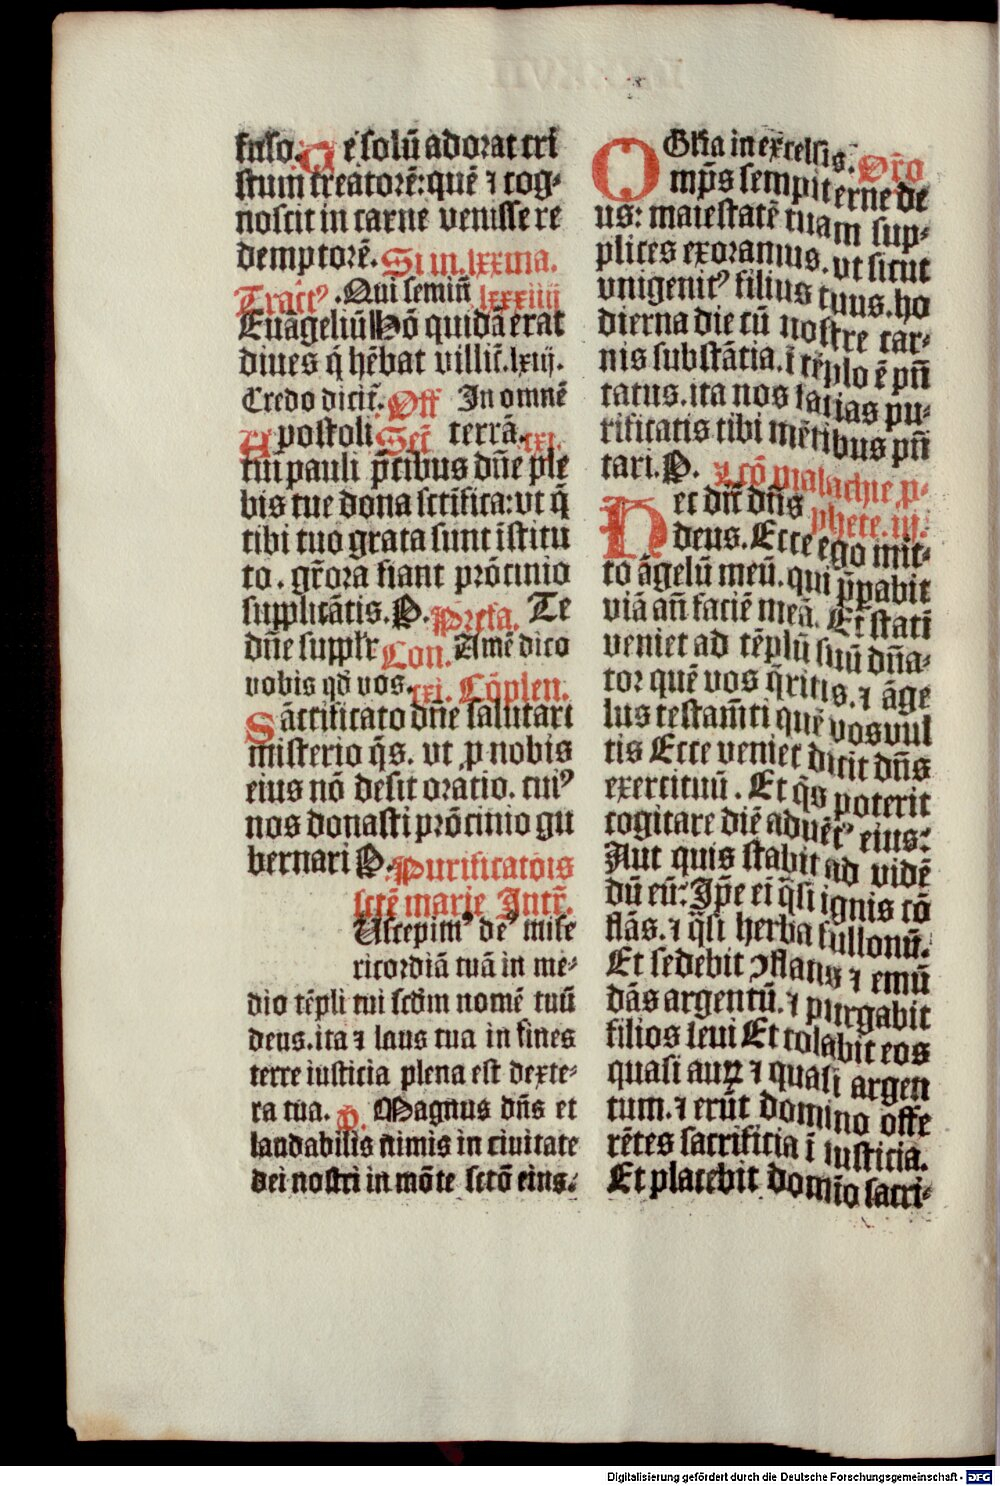 fuso. Te solū adorat cri
stum creatorē: quē ⁊ cog⸗
noscit in carne venisse re
demptorē. Si in.lxxiiia.
Tractꝰ. Qui semiñ lxxxiiij
Euāgeliū Hō quidā erat
diues q̄ hēbat villic̄.lxiij.
Credo dicit̄. Off In omnē
Apostoli Sec̄ terrā. cxi.
tui pauli p̄cibus dn̄e ple
bis tue dona scīfica: vt q̄
tibi tuo grata sunt īstitu
to. gr̄ora fiant prōcinio
supplicātis. P. Prefa. Te
dn̄e suppl̄r Con. Amē dico
vobis qd̄ vos. cxi. Cōplen.
Sāctificato dn̄e salutari
misterio q̄s. vt ꝓ nobis
eius nō desit oratio. cuiꝰ
nos donasti prōcinio gu
bernari P. Purificatōis
sctē marie Intr̄.
Uscepimꝰ deꝰ mise
ricordiā tuā in me⸗
dio tēpli tui scdm nomē tuū
deus. ita ⁊ laus tua in fines
terre iusticia plena est dexte⸗
ra tua. P. Magnus dn̄s et
laudabilis nimis in ciuitate
dei nostri in mōte sctō eius:
Gl̄ia in excelsis. Oro
Omp̄s sempiterne de
us: maiestatē tuam sup⸗
plices exoramus. vt sicut
vnigenitꝰ filius tuus. ho
dierna die cū nostre car⸗
nis substātia. ī tēplo ē pn̄
tatus. ita nos facias pu⸗
rificatis tibi mētibus pn̄
tari. P. Lcō malachie p⸗
Hec dic̄ dn̄s phete. iij.
deus. Ecce ego mit⸗
to āgelū meū. qui p̄pabit
viā an̄ faciē meā. Et stati
veniet ad tēplū suū dn̄a⸗
tor quē vos q̄ritis. ⁊ āge
lus testam̄ti quē vos vul
tis Ecce veniet dicit dn̄s
exercituū. Et q̄s poterit
cogitare diē aduētꝰ eius:
Aut quis stabit ad vidē
dū eū: Ip̄e ei q̄si ignis cō
flās. ⁊ q̄si herba fullonū.
Et sedebit ꝯflans ⁊ emū
dās argentū. ⁊ purgabit
filios leui Et colabit eos
quasi auꝝ ⁊ quasi argen
tum. ⁊ erūt domino offe
rētes sacrificia ī iusticia.
Et placebit domīo sacri⸗
Digitalisierung gefördert durch die Deutsche Forschungsgemeinschaft - DFG